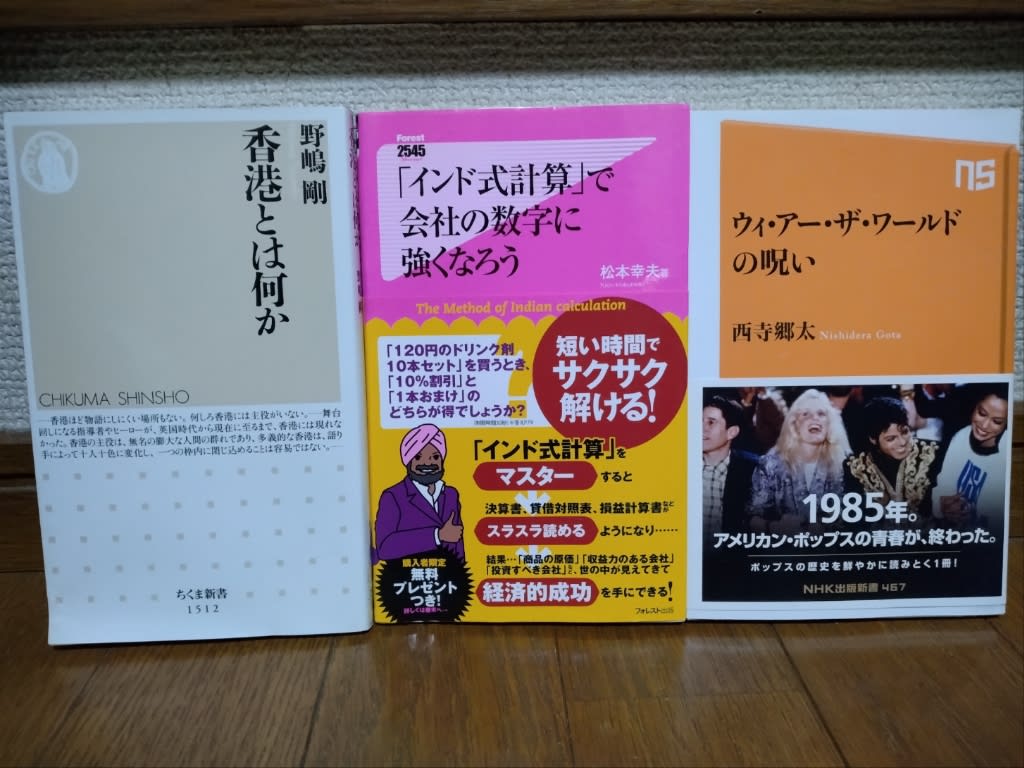 野嶋 剛
香港とは何か
CHIKUMA SHINSHO
―香港ほど物語にしにくい場所もない。何しろ香港には主役がいない。―舞台
回しになる指導者やヒーローが、英国時代から現在に至るまで、香港には現れな
かった。香港の主役は、無名の膨大な人間の群れであり、多義的な香港は、語り
手によって十人十色に変化し、一つの枠内に閉じ込めることは容易ではない。―
ちくま新書
1512
Forest
2545
「インド式計算」で
会社の数字に
強くなろう
松本幸夫 著
The Method of Indian calculation
「120円のドリンク剤
10本セット」を買うとき、
「10%割引」と
「1本おまけ」の
どちらが得でしょうか?
短い時間で
サクサク
解ける!
「インド式計算」を
マスターすると
決算書、貸借対照表、損益計算書などが
スラスラ読めるようになり……
結果…「商品の原価」「収益力のある会社」
「投資すべき会社」と、世の中が見えてきて
経済的成功を手にできる!
購入者限定
無料
プレゼント
つき!
詳しくは巻末へ…
フォレスト出版
ns
ウィ・アー・ザ・ワールド
の呪い
西寺郷太 Nishidera Gota
1985年。
アメリカン・ポップスの青春が、終わった。
ポップスの歴史を鮮やかに読みとく1冊!
NHK出版新書 467